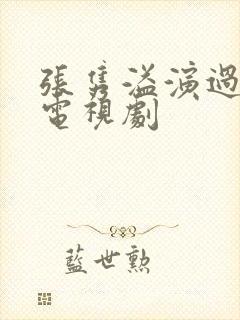 張雋溢演過
電視劇
藍世勲